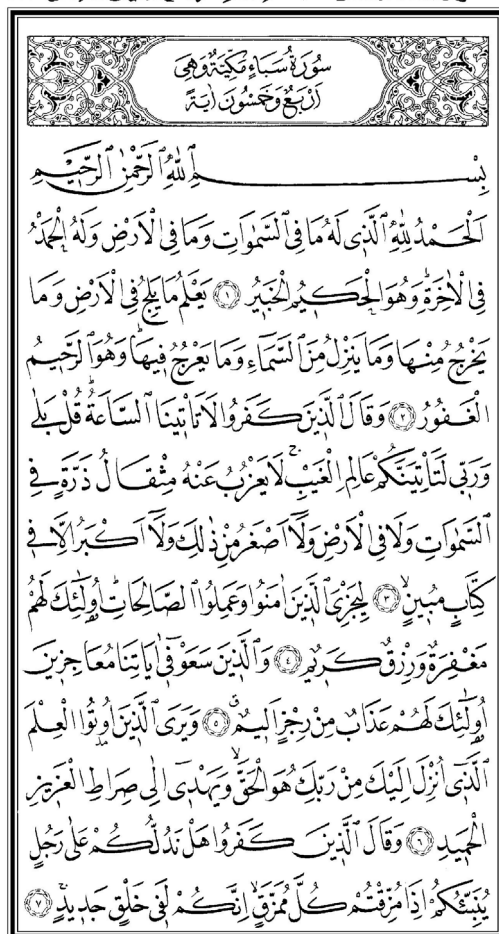 سُورَةُ سَبَاءٍ مَكِّيَّةٌ وَهِيَ
اَرْبَعٌ وَخَمْسُونَ اٰيَةً
بِسْمِ اللّٰهِ الرَّحْمٰنِ الرَّحٖيمِ
اَلْحَمْدُ لِلّٰهِ الَّذٖى لَهُ مَا فِى السَّمٰوَاتِ وَمَا فِى الْاَرْضِ وَلَهُ الْحَمْدُ
فِى الْاٰخِرَةِؕ وَهُوَ الْحَكٖيمُ الْخَبٖيرُ ﴿١﴾ يَعْلَمُ مَا يَلِجُ فِى الْاَرْضِ وَمَا
يَخْرُجُ مِنْهَا وَمَا يَنْزِلُ مِنَ السَّمَٓاءِ وَمَا يَعْرُجُ فٖيهَاؕ وَهُوَ الرَّحٖيمُ
الْغَفُورُ ﴿٢﴾ وَقَالَ الَّذٖينَ كَفَرُوا لَا تَأْتٖينَا السَّاعَةُؕ قُلْ بَلٰى
وَرَبّٖى لَتَأْتِيَنَّكُمْ عَالِمِ الْغَيْبِۚ لَا يَعْزُبُ عَنْهُ مِثْقَالُ ذَرَّةٍ فِى
السَّمٰوَاتِ وَلَا فِى الْاَرْضِ وَلَٓا اَصْغَرُ مِنْ ذٰلِكَ وَلَٓا اَكْبَرُ اِلَّا فٖى
كِتَابٍ مُبٖينٍۙ ﴿٣﴾ لِيَجْزِىَ الَّذٖينَ اٰمَنُوا وَعَمِلُوا الصَّالِحَاتِؕ اُو۬لٰٓئِكَ لَهُمْ
مَغْفِرَةٌ وَرِزْقٌ كَرٖيمٌ ﴿٤﴾ وَالَّذٖينَ سَعَوْ فٖٓى اٰيَاتِنَا مُعَاجِزٖينَ
اُو۬لٰٓئِكَ لَهُمْ عَذَابٌ مِنْ رِجْزٍ اَلٖيمٌ ﴿٥﴾ وَيَرَى الَّذٖينَ اُو۫تُوا الْعِلْمَ
الَّذٖٓى اُنْزِلَ اِلَيْكَ مِنْ رَبِّكَ هُوَ الْحَقَّۙ وَيَهْدٖٓى اِلٰى صِرَاطِ الْعَزٖيزِ
الْحَمٖيدِ ﴿٦﴾ وَقَالَ الَّذٖينَ كَفَرُوا هَلْ نَدُلُّكُمْ عَلٰى رَجُلٍ
يُنَبِّئُكُمْ اِذَا مُزِّقْتُمْ كُلَّ مُمَزَّقٍۙ اِنَّكُمْ لَفٖى خَلْقٍ جَدٖيدٍۚ ﴿٧﴾